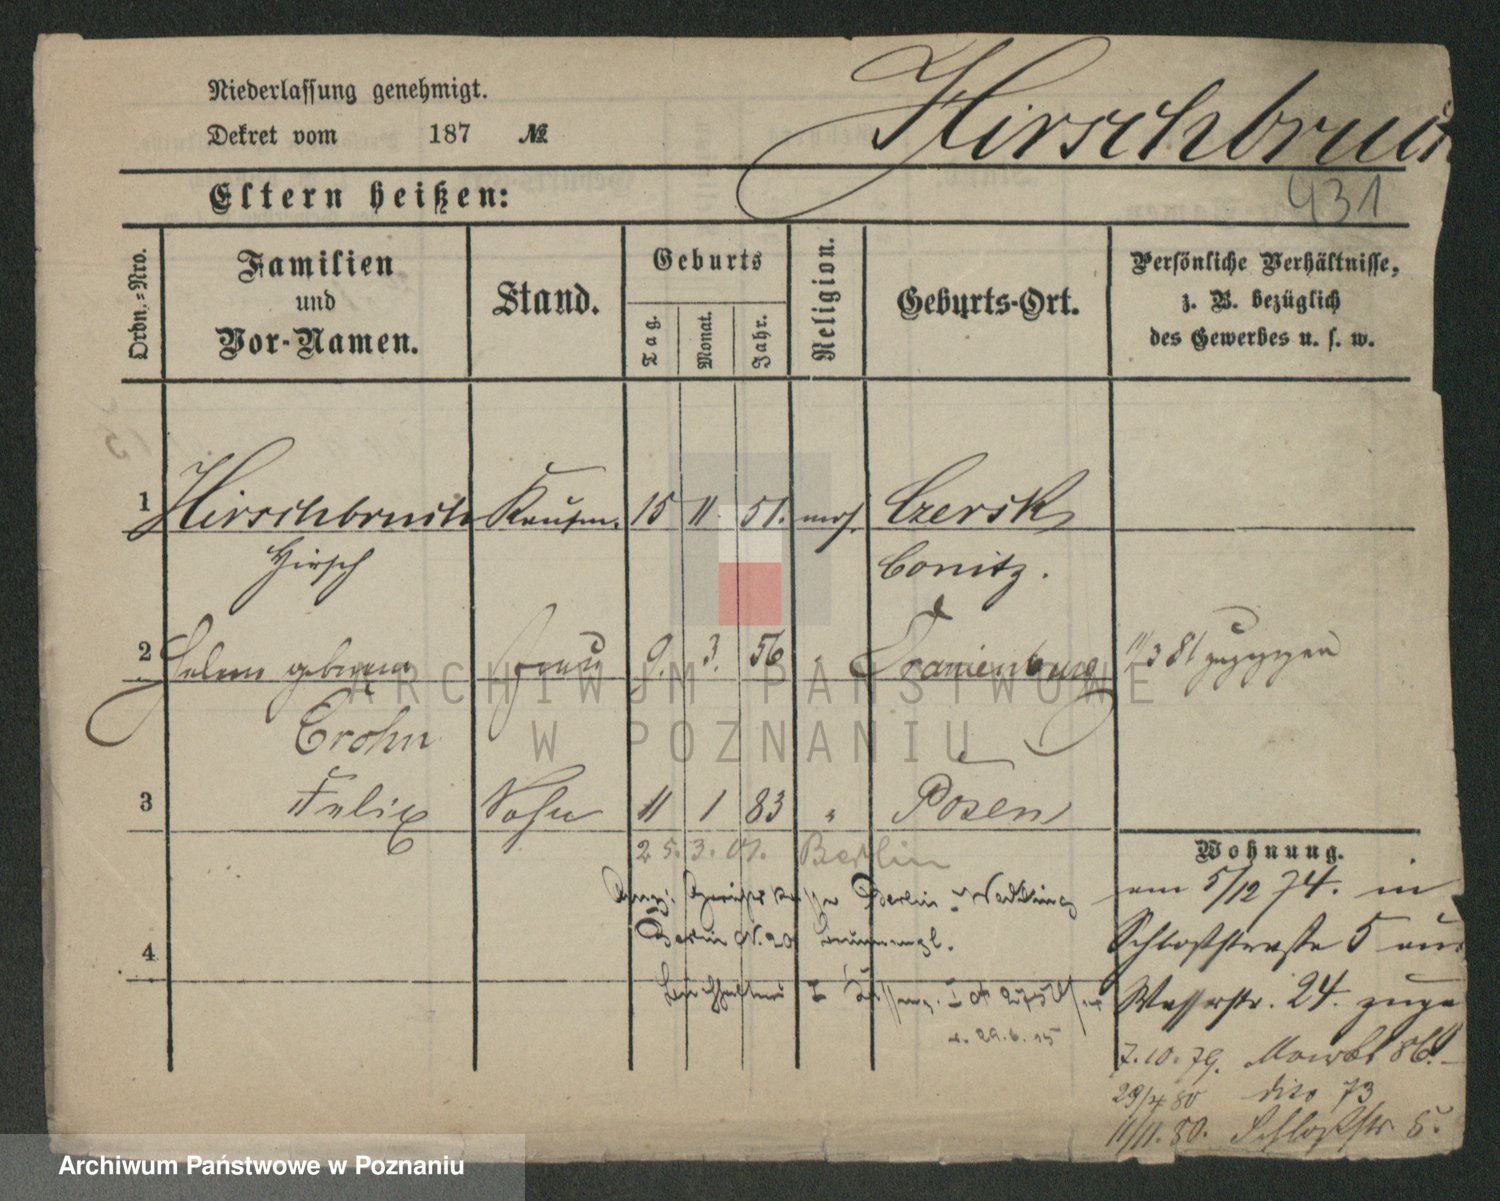 Niederlassung genehmigt.
Hirschbruch
Dekret vom 187 №
431
Eltern heißen:
Ordn.-Nro.
Familien und Vor-Namen.
Stand.
Geburts
Tag.
Monat.
Jahr.
Religion.
Geburts-Ort.
Persönliche Verhältnisse, z. B. bezüglich des Gewerbes u. s. w.
1 Hirschbruch Kaufm. 15 11 51. mos. Czersk
Hirsch Conitz.
2 geborene Frau 9. 3. 56 " Oranienburg 11/3 81 zugezogen
Crohn
3 Felix Sohn 11 1 83 " Posen
25. 3. 07. Berlin
Berlin-Wedding
4
Wohnung.
am 5/12 74. in
Schloßstraße 5 aus
Wasserstr. 24.
7.10.79. Markt 86.
29/4 80 dito 73
11/11.80. Schloßstr 5.
29.6.15
ARCHIWUM PAŃSTWOWE
W POZNANIU
Archiwum Państwowe w Poznaniu